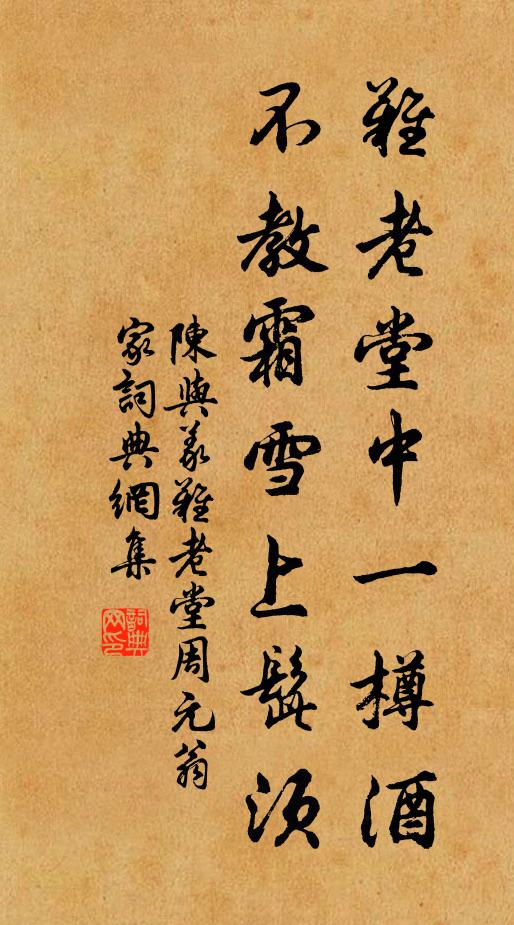 難老堂中一樽酒
不教霜雪上髭須
陳與義難老堂周元翁
家詞典網集
詞典
网印